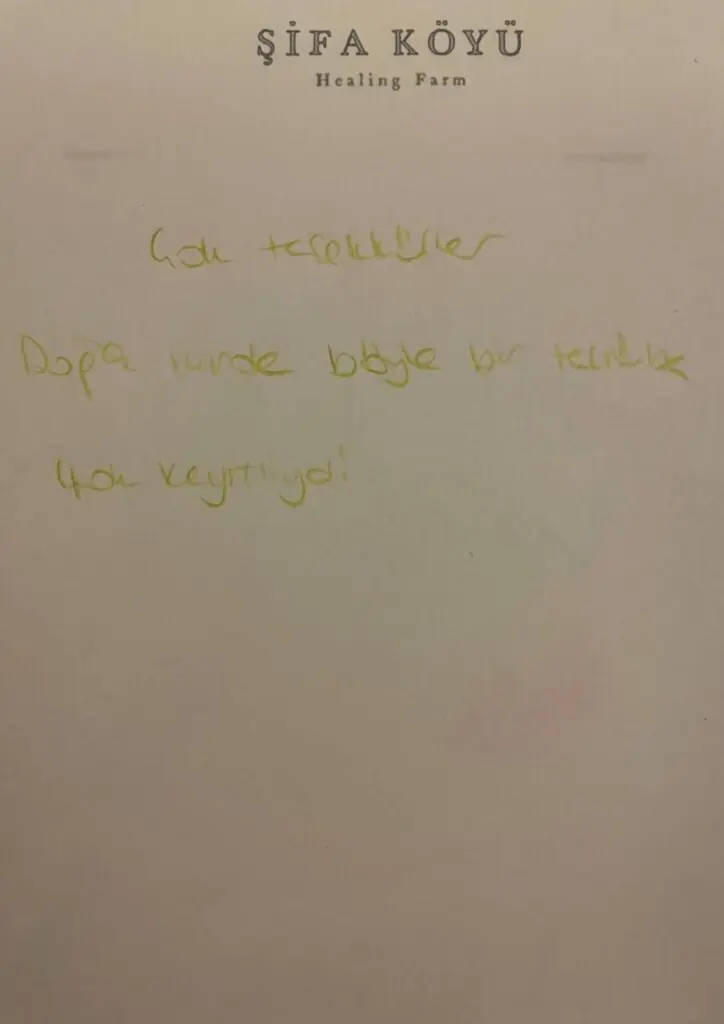 ŞİFA KÖYÜ
Healing Farm
Çok teşekkürler
Doğa içinde böyle bir tecrübe
çok keyifliydi